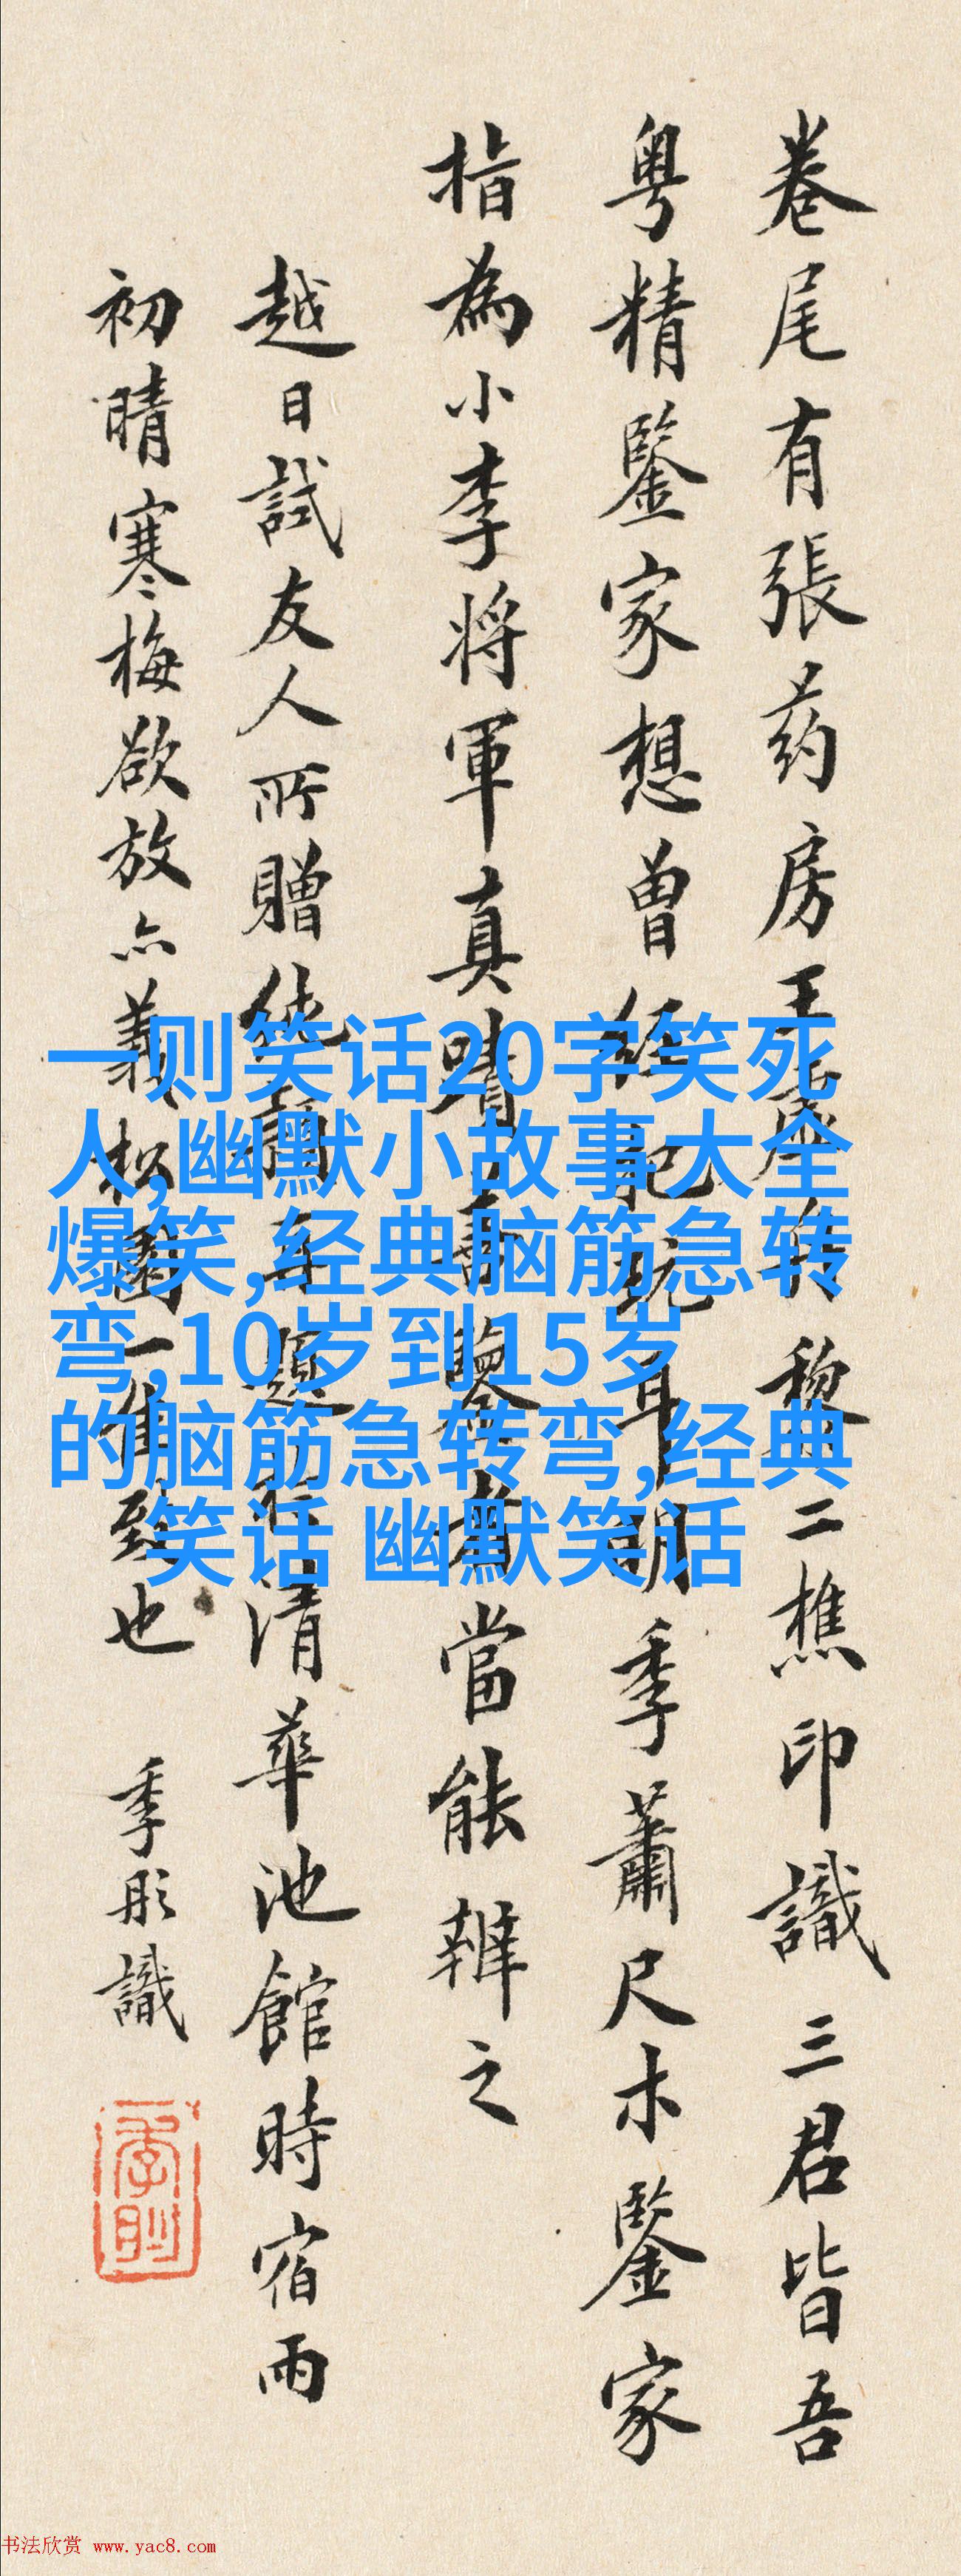 卷尾有張药房王黎二樵印識三君皆吾
粤精鑒家想曾經把玩耳明季蕭尺木鑒家
指為小李将軍真蹟善鑒者當能辨之
越日試友人所贈題清華池館時宿雨
初晴寒梅欲放亦義松園一佳致也 季彤識
一则笑话20字笑死
人,幽默小故事大全
爆笑,经典脑筋急转
弯,10岁到15岁
的脑筋急转弯,经典
笑话 幽默笑话
书法欣赏 www.yac8.com